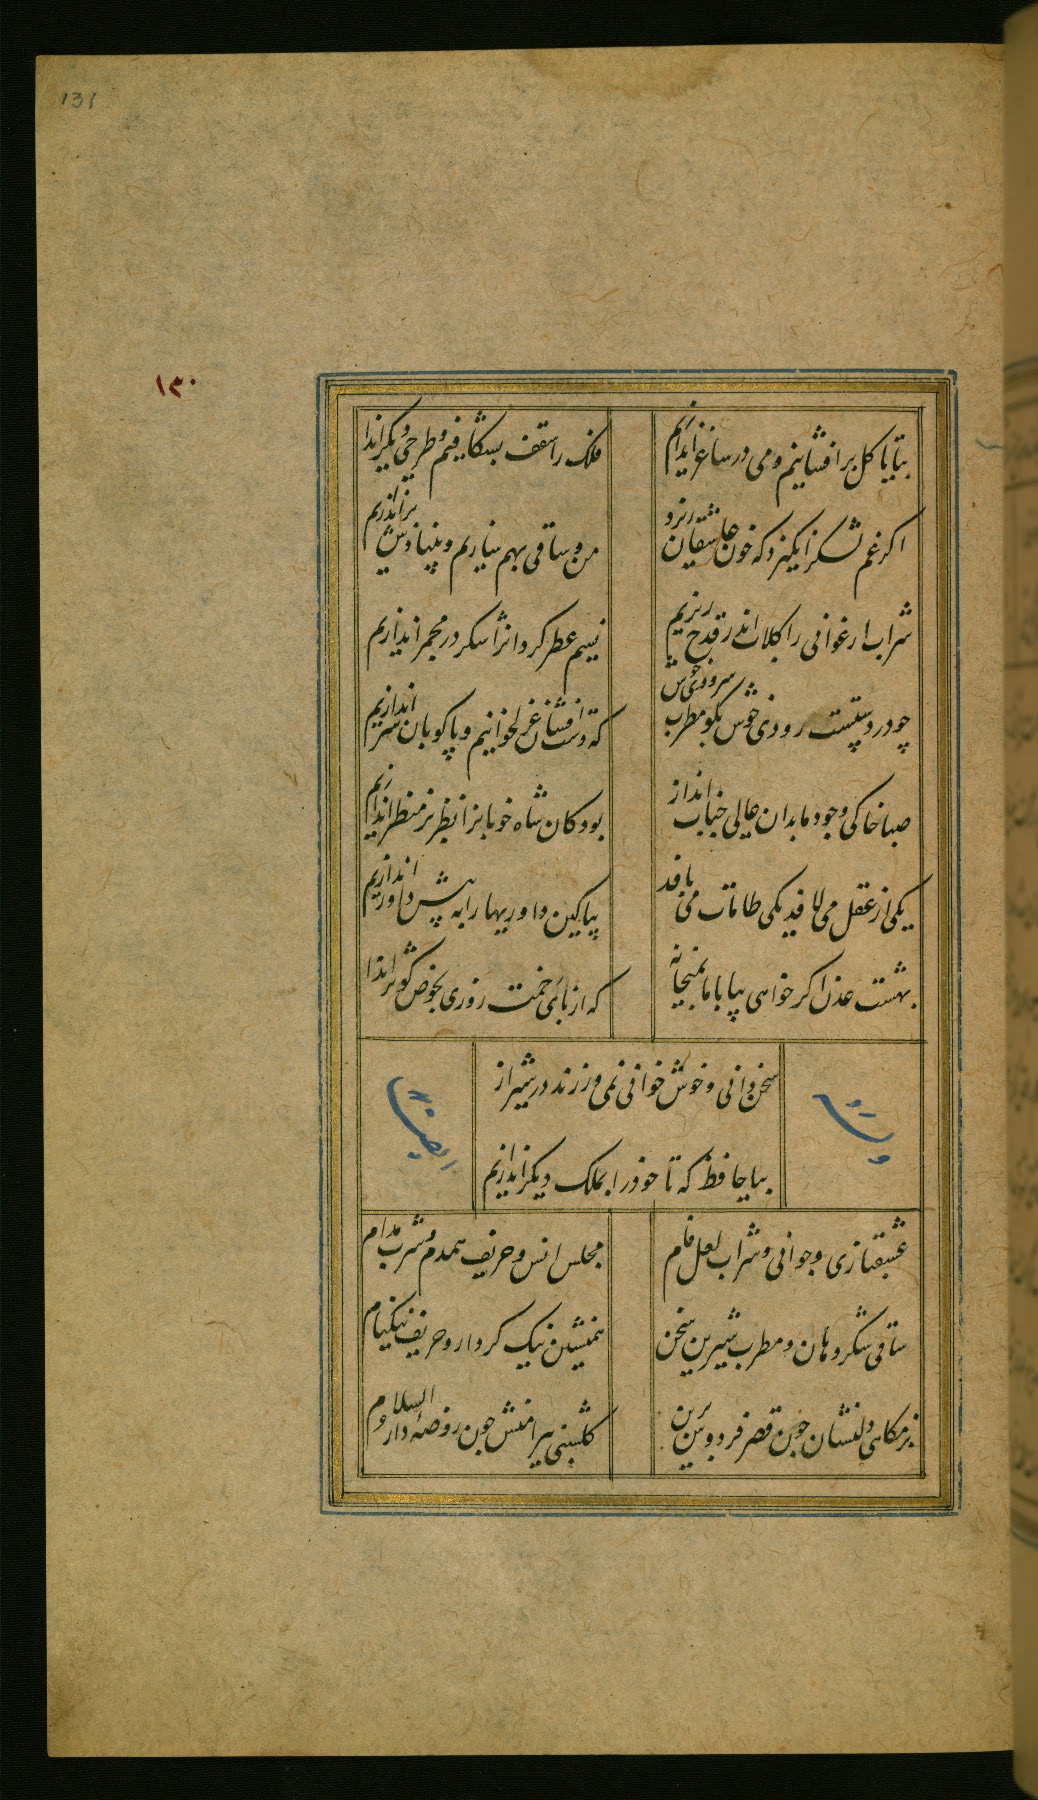 131
۱۳۰
بیا تا کل برافشانیم و می در ساغر اندازیم
فلک را سقف بشکافیم و طرحی دیکر اندازیم
اکر غم لشکر انکیزد که خون عاشقان ریزد
من و ساقی بهم سازیم و بنیادش براندازیم
شراب ارغوانی را کلاب اندر قدح ریزیم
نسیم عطر کردانرا شکر در مجمر اندازیم
چو در دستست رودی خوش بکو مطرب سرودی خوش
که دست افشان غزل خوانیم و پاکوبان سر اندازیم
صبا خاک وجود ما بدان عالی جناب انداز
بود کان شاه خوبانرا نظر بر منظر اندازیم
یکی از عقل می لافد یکی طامات می بافد
بیا کین داوریها را به پیش داور اندازیم
بهشت عدن اکر خواهی بیا با ما بمیخانه
که از پای خمت روزی بحوض کوثر اندازیم
سخن دانی و خوش خوانی نمی ورزند در شیراز
بیا حافظ که تا خود را بملک دیکر اندازیم
وله
ایضا
عشقبازی و جوانی و شراب لعل فام
مجلس انس و حریف همدم و شرب مدام
ساقی شکر دهان و مطرب شیرین سخن
همنشین نیک کردار و حریف نیکنام
بزمکاهی دلنشان چون قصر فردوس برین
کلشنی پیرامنش چون روضه دار السلام